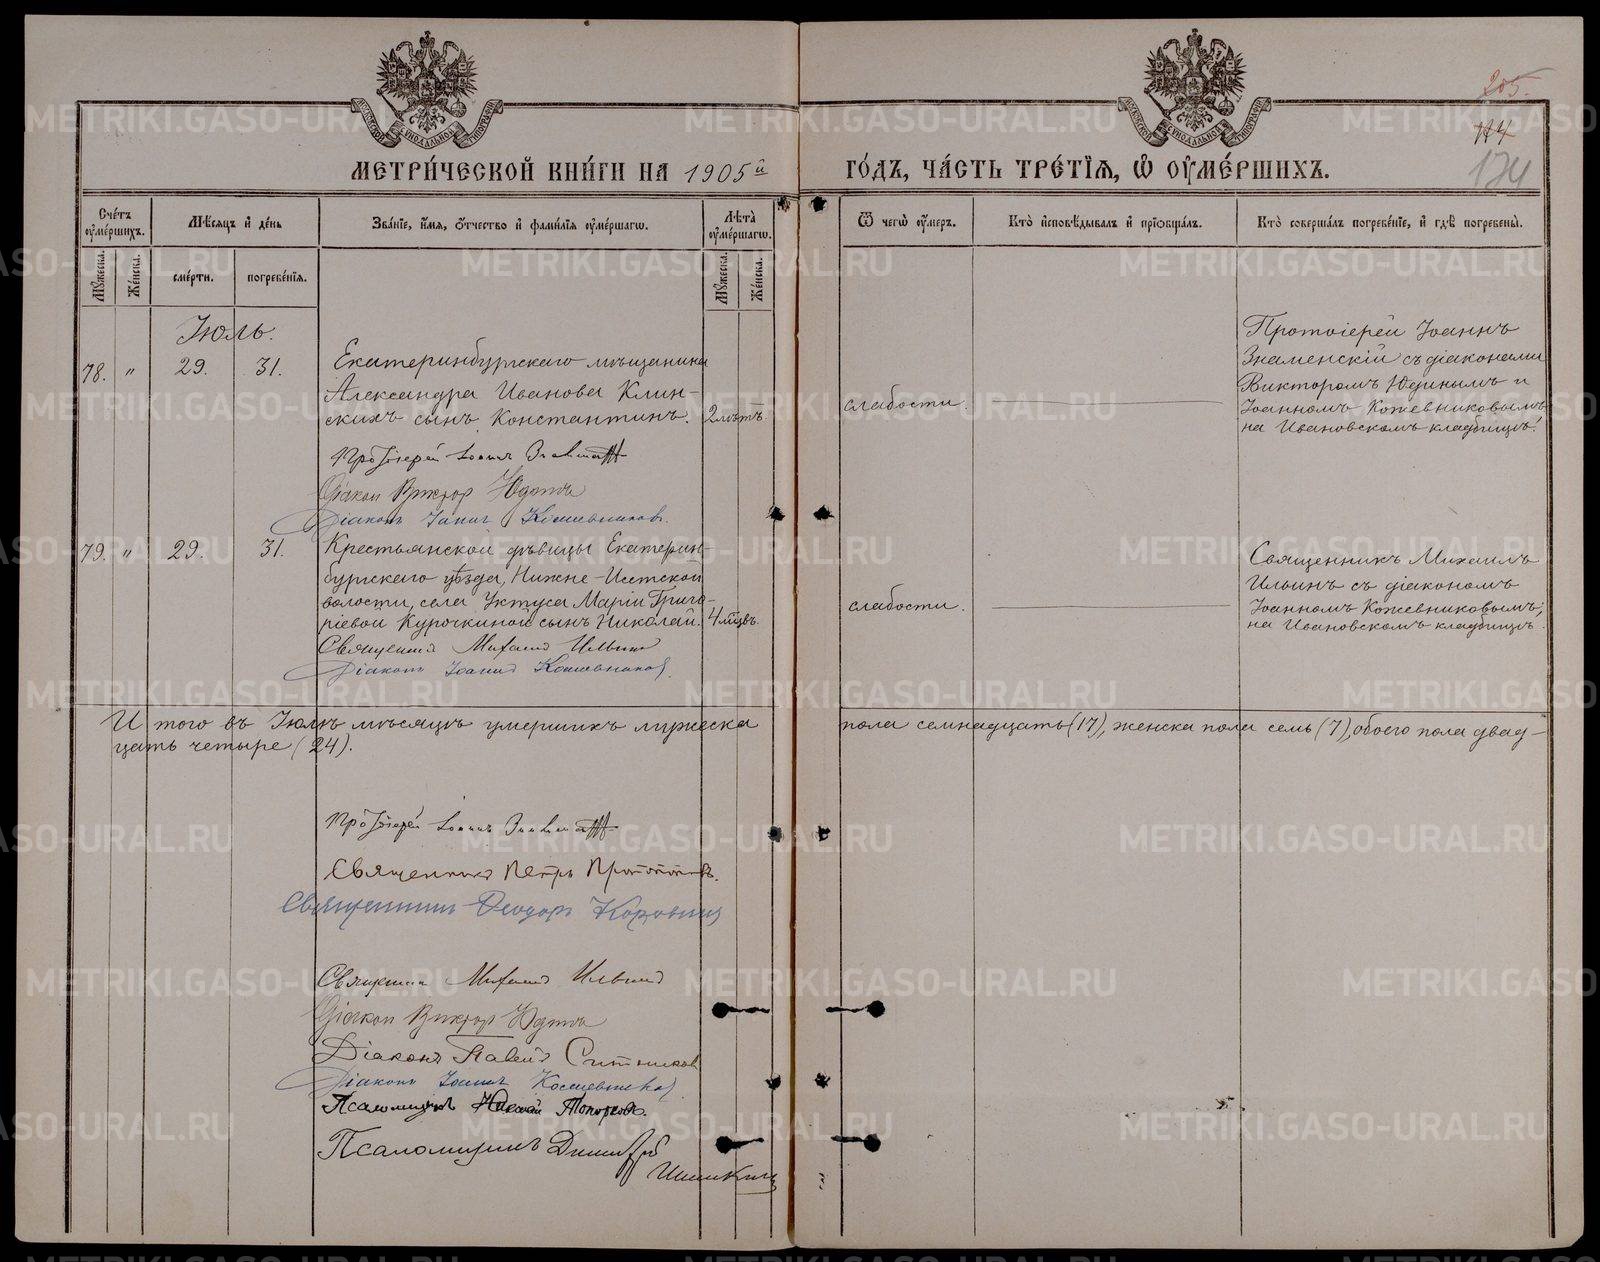 205.
114
174
МЕТРИ́ЧЕСКОЙ КНИ́ГИ НА 1905й ГО́ДЪ, ЧА́СТЬ ТРЕ́ТІѦ, Ѽ ОУ҆МЕ́РШИХЪ.
Сче́тъ оу҆ме́ршихъ.
Мѣ́сѧцъ и҆ де́нь
Зва́нїе, и҆́мѧ, ѻ҆́тчество и҆ фами́лїѧ оу҆ме́ршагѡ.
Лѣ́та оу҆ме́ршагѡ.
Ѿ чегѡ̀ оу҆́меръ.
Кто̀ и҆сповѣ́дывалъ и҆ прїѻбща́лъ.
Кто̀ соверша́лъ погребе́нїе, и҆ гдѣ̀ погребены̀.
Мꙋ́жеска.
Же́нска.
сме́рти.
погребе́нїѧ.
Мꙋ́жеска.
Же́нска.
Іюль.
78. " 29. 31.
Екатеринбургскаго мѣщанина
Александра Иванова Клин-
скихъ сынъ Константинъ. 2 лѣтъ
слабости.
Протоіерей Іоаннъ
Знаменскій съ діаконами
Викторомъ Юдинымъ и
Іоанномъ Кожевниковымъ
на Ивановскомъ кладбищѣ.
Протоіерей Іоаннъ Знаменскій
Діаконъ Викторъ Юдинъ
Діаконъ Іоаннъ Кожевниковъ.
79. " 29. 31.
Крестьянской дѣвицы Екатерин-
бургскаго уѣзда, Нижне-Исетской
волости, села Уктуса Маріи Григо-
ріевой Курочкиной сынъ Николай. 4 мѣцвъ.
слабости.
Священникъ Михаилъ
Ильинъ съ діакономъ
Іоанномъ Кожевниковымъ;
на Ивановскомъ кладбищѣ.
Священникъ Михаилъ Ильинъ
Діаконъ Іоаннъ Кожевниковъ
Итого въ Іюлѣ мѣсяцѣ умершихъ мужеска пола семнадцать (17), женска пола семь (7), обоего пола двад-
цать четыре (24).
Протоіерей Іоаннъ Знаменскій
Священникъ Петръ Протопоповъ.
Священникъ Ѳеодоръ Коровинъ
Священникъ Михаилъ Ильинъ
Діаконъ Викторъ Юдинъ
Діаконъ Павелъ Ситниковъ
Діаконъ Іоаннъ Кожевниковъ
Псаломщикъ Николай Топорковъ.
Псаломщикъ Димитрій
Шишкинъ
METRIKI.GASO-URAL.RU